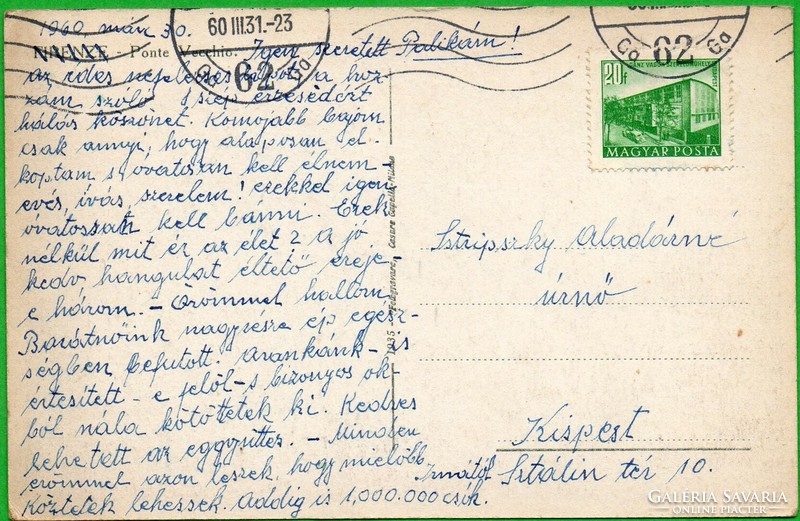 1960, márc 30.
- Ponte Vecchio. Igen szeretett Palikám!
az édes
zám szóló s szép értesédért
hálás köszönet. Komojabb bajom
csak annyi, hogy alaposan el-
koptam s óvatosan kell élnem
evés, ivás, szerelem! ezekkel igen
óvatossan kell bánni. Ezek
nélkül mit ér az élet? A jó
kedv, hangulat éltető ereje,
e három. - Örömmel hallom
Barátnőink nagyrésze ép egész-
ségben befutott. Arankánk - is
értesített - e felől - s bizonyos ok-
ból nála kötöttek ki. Kedves
lehetett az eggyüttes. - Minden
erőmmel azon leszek, hogy mielőbb
Köztetek lehessek. Addig is 1,000.000 csók.
Irmától
60 III.31.-23
62
Ga
62
Ga
20f
BUDAPEST
MAGYAR POSTA
Stripszky Aladárné
úrnő
Kispest
Sztálin tér 10.
Cesare Capello, Milano
GALERIA SAVARIA
ONLINE PIACTÉR